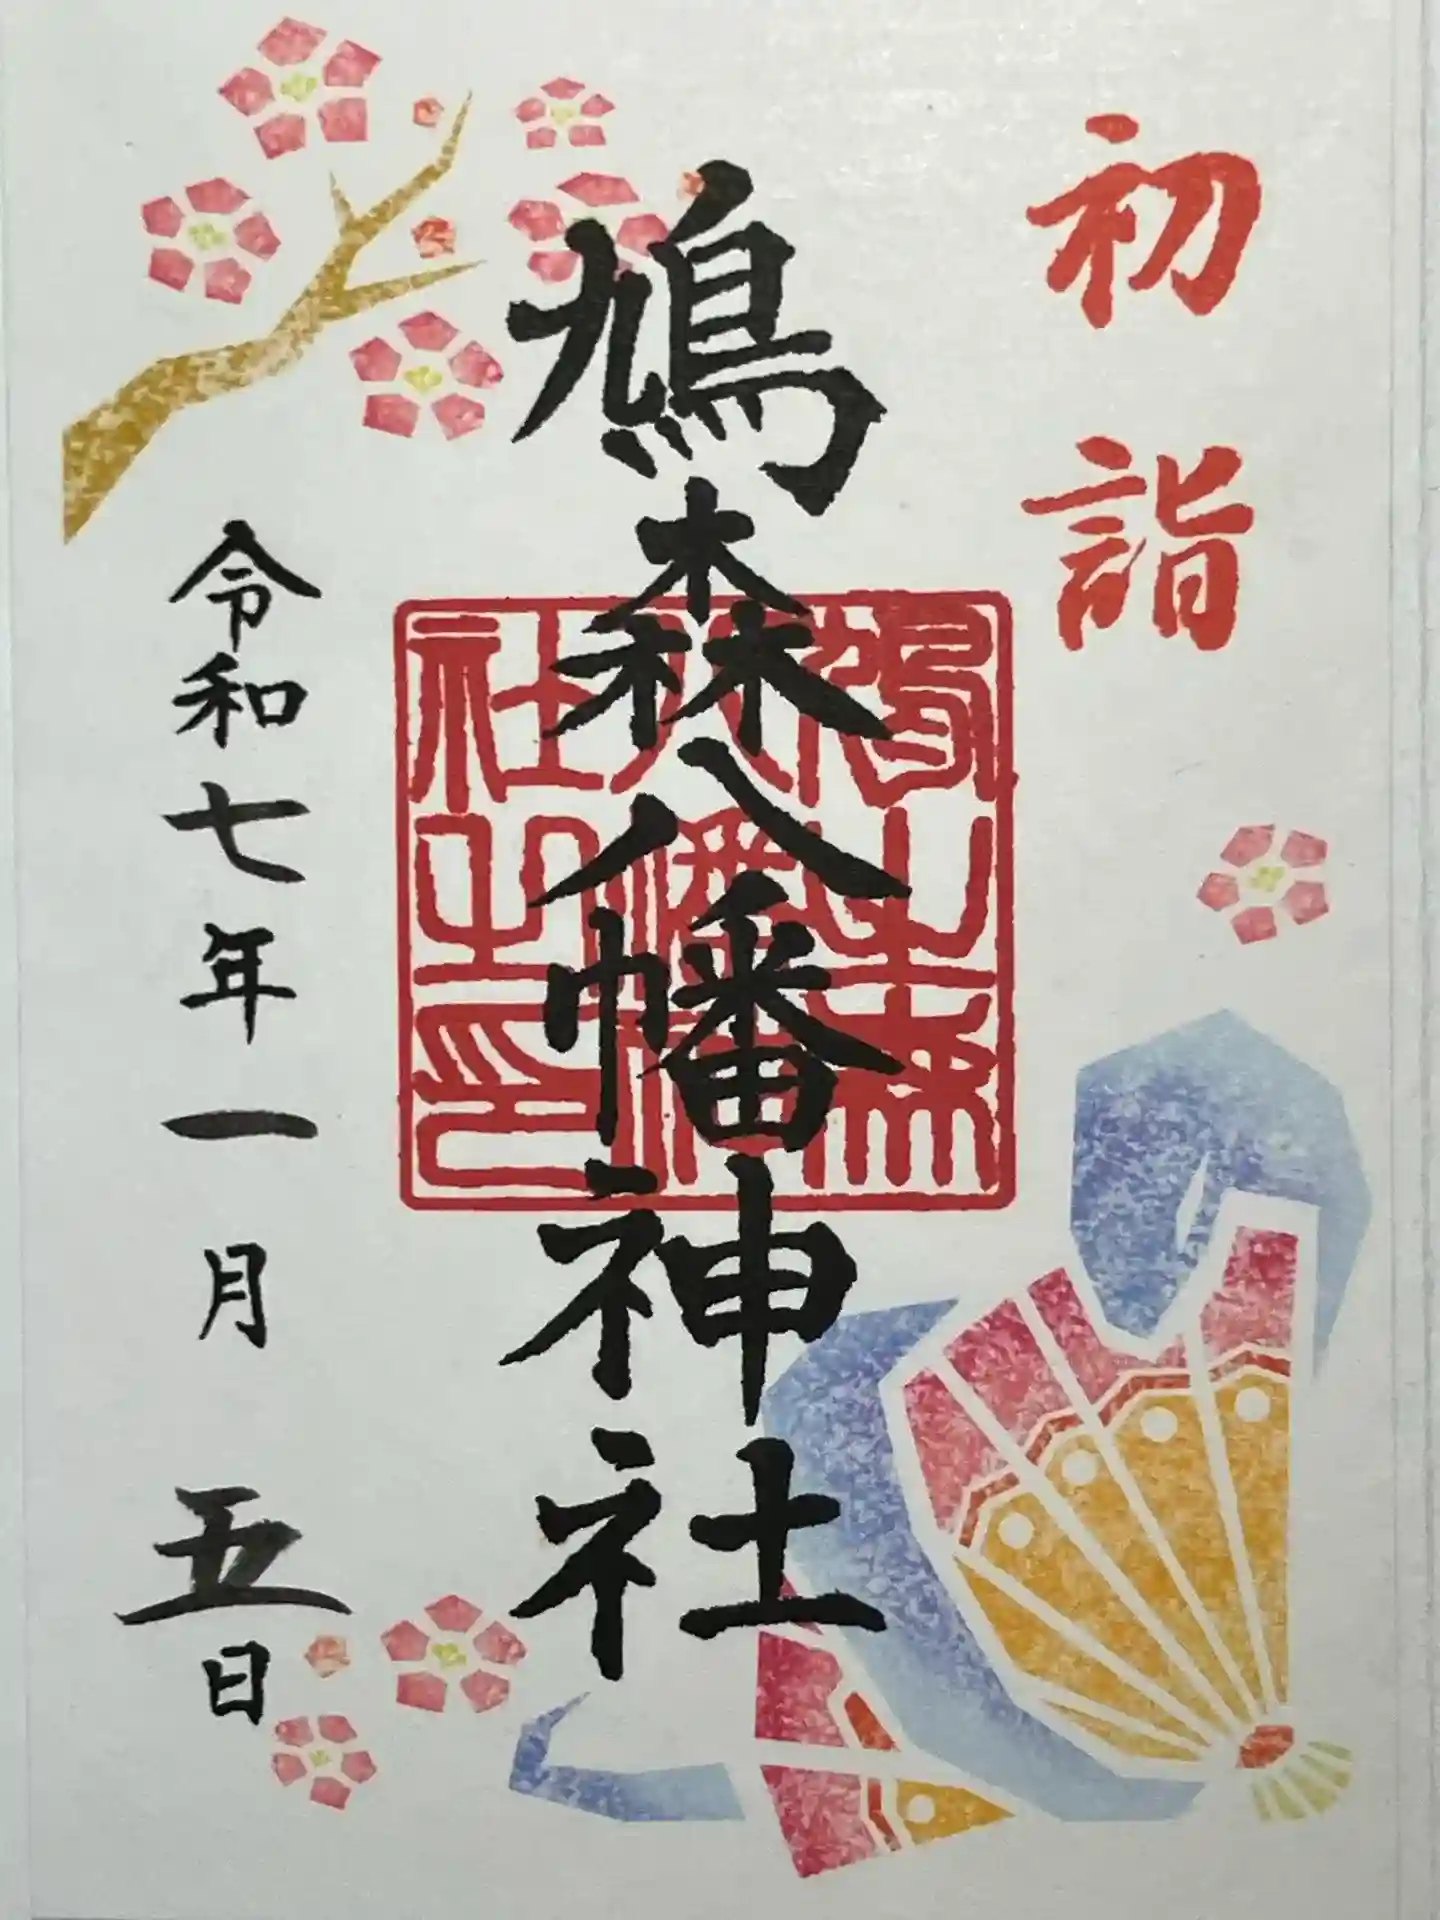 初詣
鳩森八幡神社
鳩之森
八幡神
社之印
令和七年一月五日